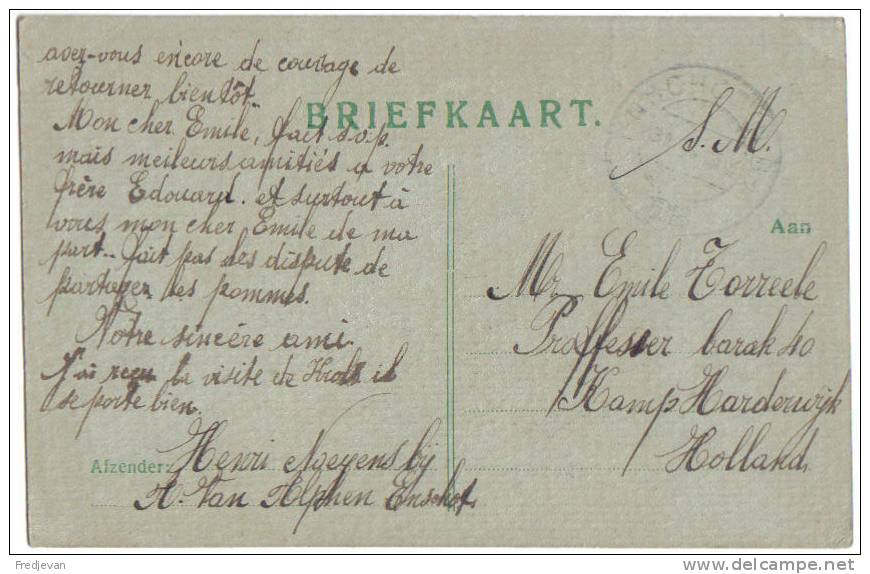 avez-vous encore de courage de
retourner bientôt.
BRIEFKAART.
Mon cher Emile, fait s.o.p.
mais meileurs amitiés a votre
frère Edouard. et surtout à
vous mon cher Emile de ma
part.. fait pas des dispute de
partager les pommes.
Notre sincére ami.
J'ai reçu la visite de il
se porte bien.
Afzender: Henri Noeyens bij
A. Van Alphen Enschot
S. M.
Aan
Mr. Emile Torreele
Proffesser barak 40
Kamp Harderwijk
Holland
Fredjevan
delcampe.net